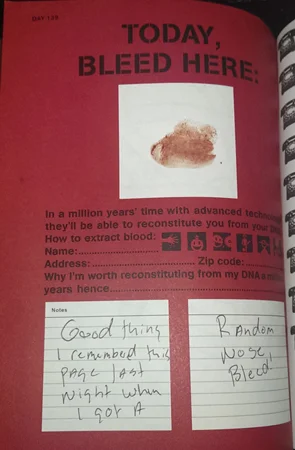 DAY 139
TODAY,
BLEED HERE:
In a million years' time with advanced
they'll be able to reconstitute you from your
How to extract blood:
Name:
Address: Zip code:
Why I'm worth reconstituting from my DNA a
years hence
Notes
Good thing
I remembered this
PAGE last
Night when
I got A
Random
Nose
Bleed